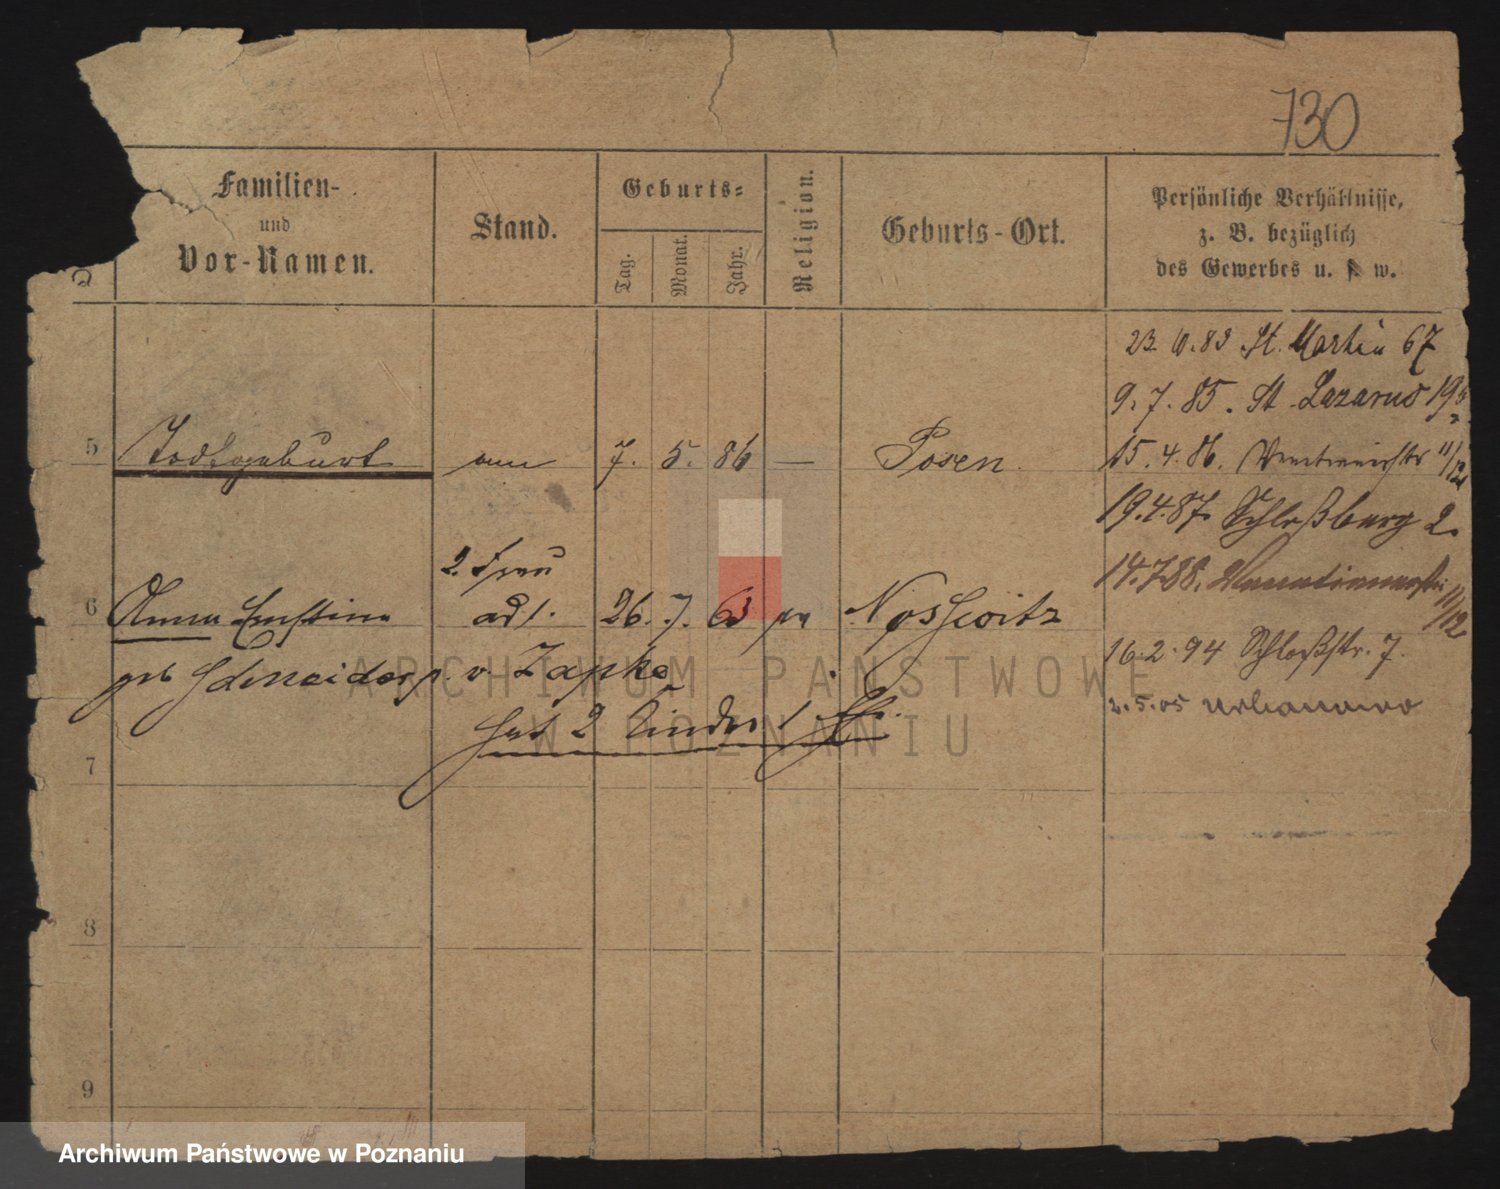 730
Familien-
und
Vor-Namen.
Stand.
Geburts-
Tag.
Monat.
Jahr.
Religion.
Geburts-Ort.
Persönliche Verhältnisse,
z. B. bezüglich
des Gewerbes u. s. w.
23. 6. 83 St. Martin 67
9. 7. 85. St. Lazarus
5 Todtgeburt am 7. 5. 86 — Posen.
15. 4. 86. 11/12
19. 4. 87. Schloßberg 2.
14. 7 88. 11/12
2. Frau
6 Anna Ernstine adl. 26. 7. 63
16. 2. 94 Schloßstr. 7.
geb Schneider v. Zapke
2. 5. 05
hat 2 Kinder
7
8
9
ARCHIWUM PAŃSTWOWE
W POZNANIU
Archiwum Państwowe w Poznaniu